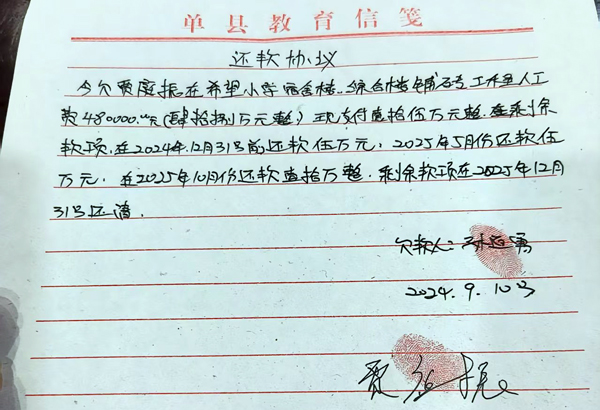 单县教育信笺
还款协议
今欠贾庆振在希望小学宿舍楼、综合楼铺砖工程人工
费480000.00元(肆拾捌万元整)现支付壹拾伍万元整.在剩余
款项.在2024年.12月31号前还款伍万元,2025年5月份还款伍
万元,在2025年10月份还款壹拾万整.剩余款项在2025年12月
31号还清.
欠款人:
2024.9.10号
贾 振